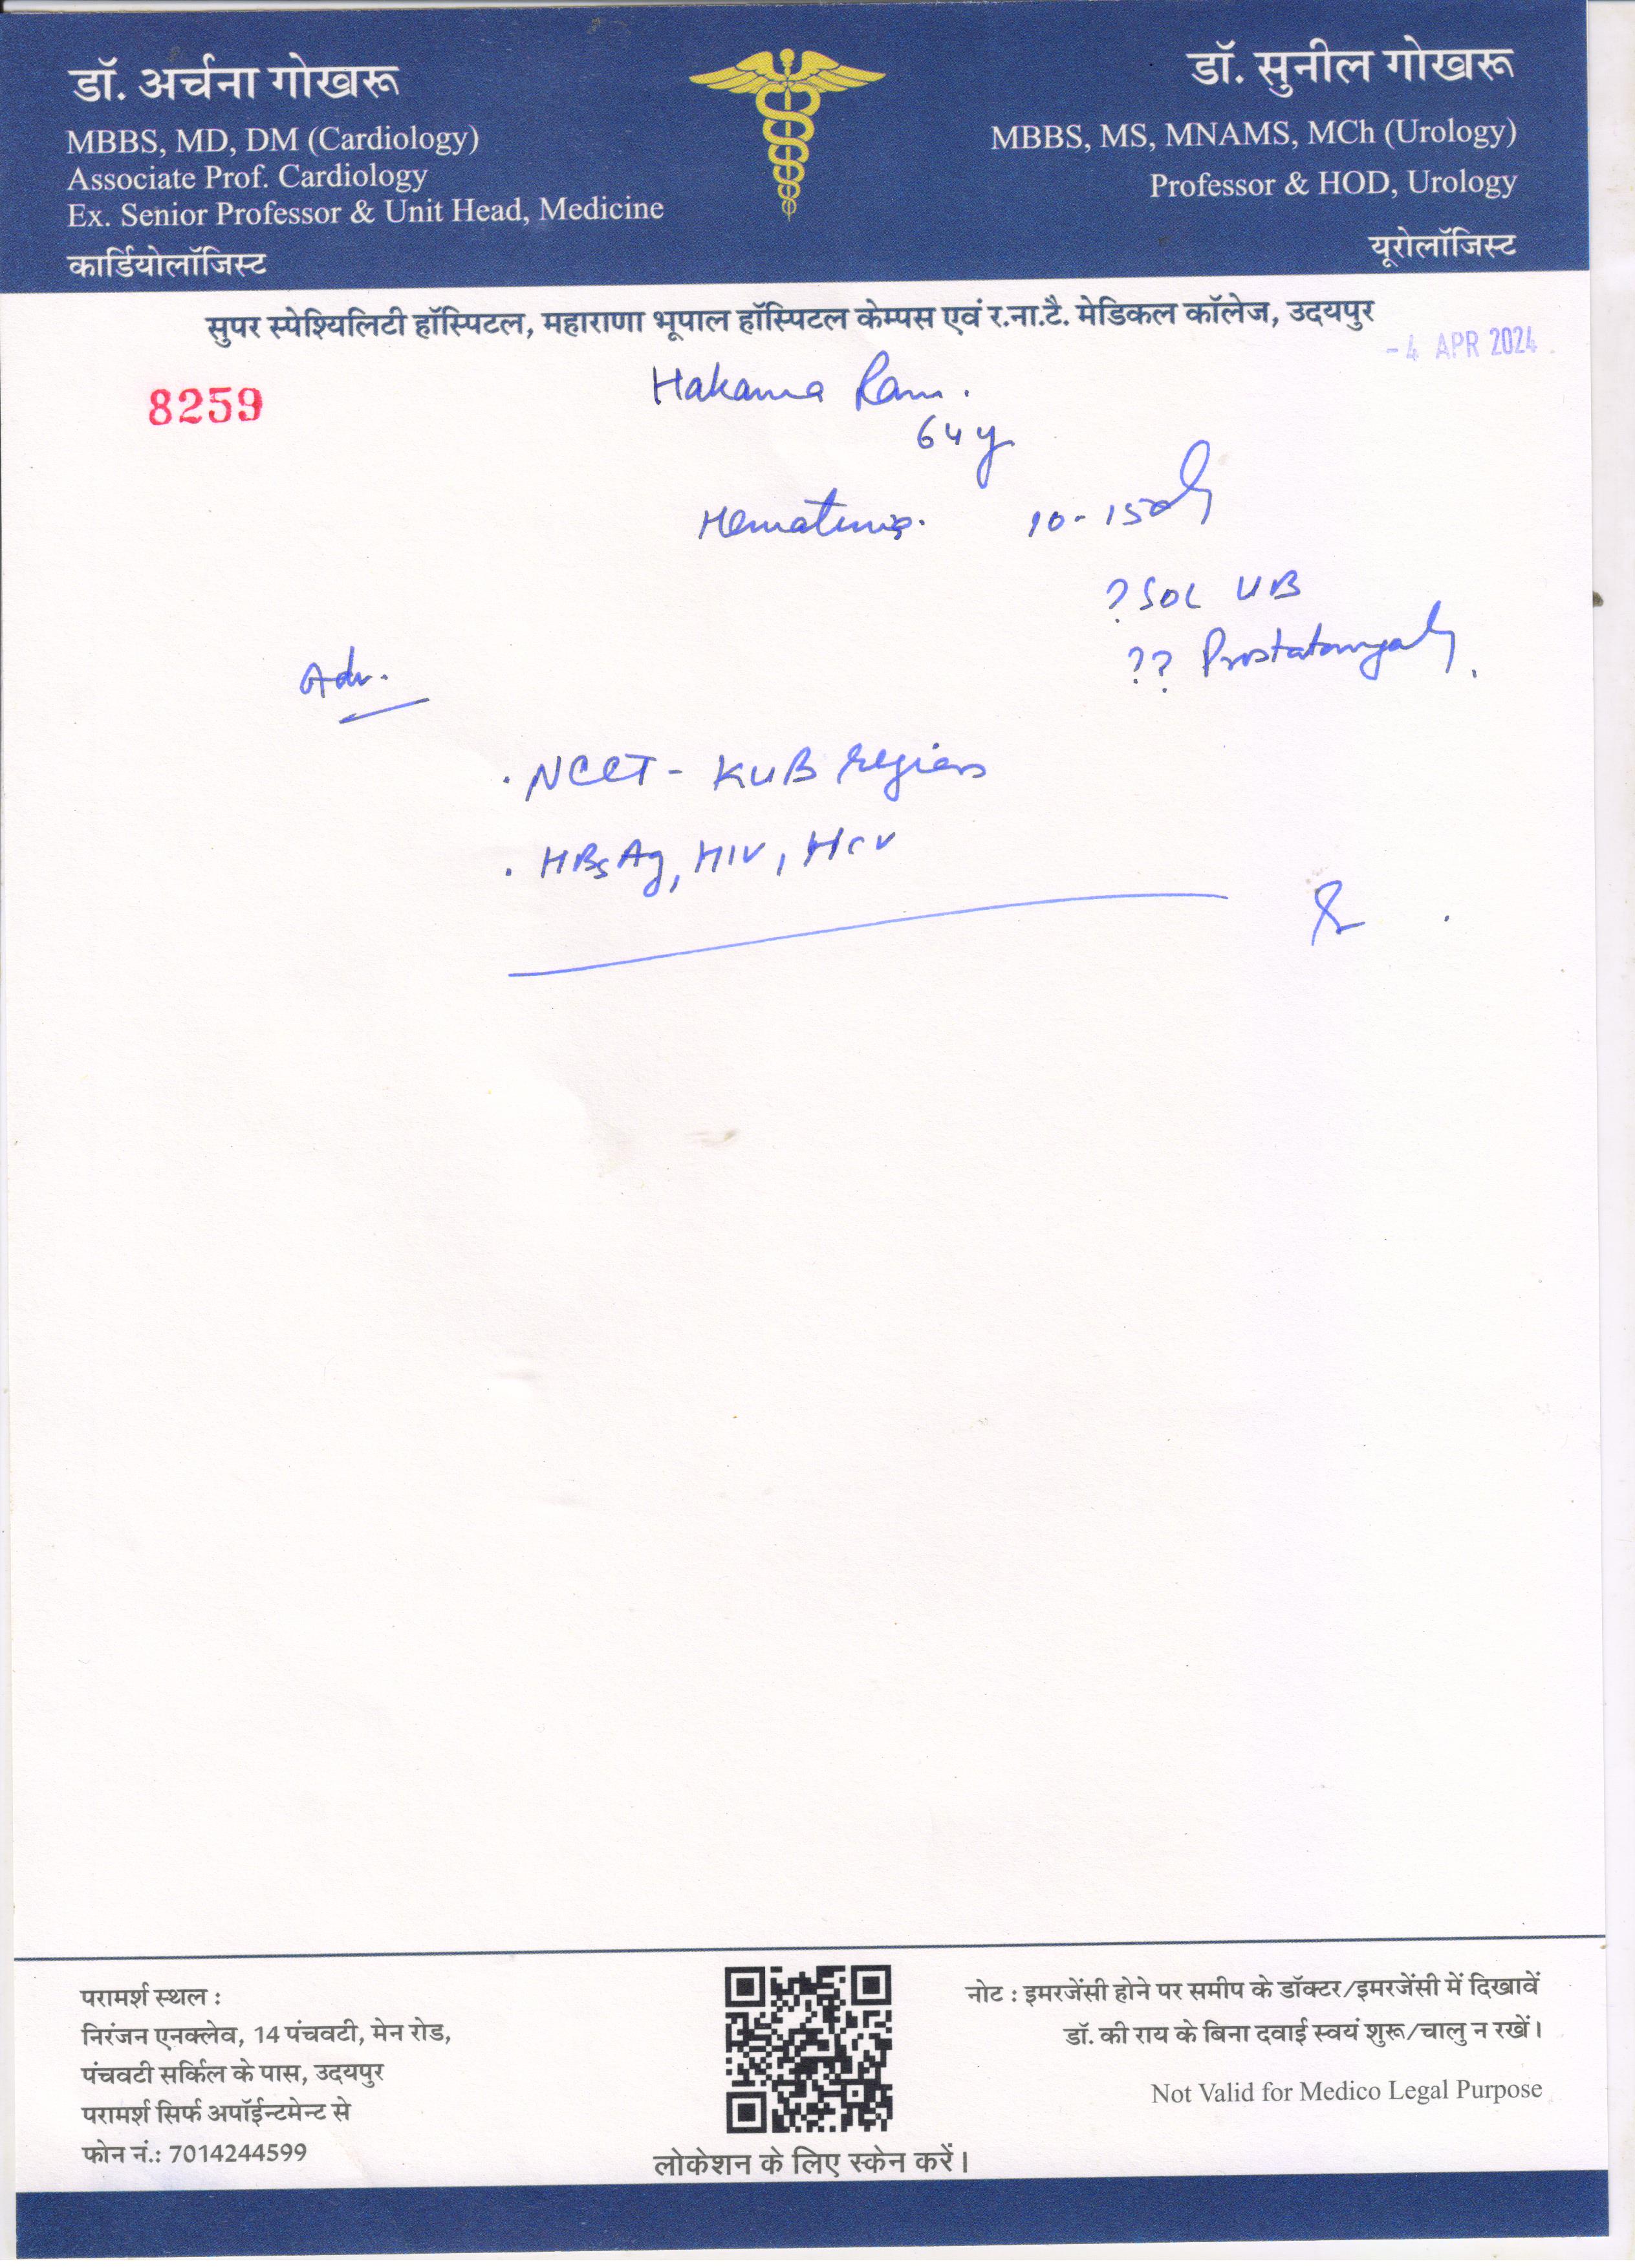 डॉ. अर्चना गोखरू
MBBS, MD, DM (Cardiology)
Associate Prof. Cardiology
Ex. Senior Professor & Unit Head, Medicine
कार्डियोलॉजिस्ट
डॉ. सुनील गोखरू
MBBS, MS, MNAMS, MCh (Urology)
Professor & HOD, Urology
यूरोलॉजिस्ट
सुपर स्पेश्यिलिटी हॉस्पिटल, महाराणा भूपाल हॉस्पिटल केम्पस एवं र.ना.टै. मेडिकल कॉलेज, उदयपुर
-4 APR 2024
8259
Hakama Ram.
64y
Hematuria. 10-15d
? SOL UB
?? Prostatomegaly.
Adv.
. NCCT - KUB region
. HBsAg, HIV, HCV
परामर्श स्थल :
निरंजन एनक्लेव, 14 पंचवटी, मेन रोड,
पंचवटी सर्किल के पास, उदयपुर
परामर्श सिर्फ अपॉईन्टमेन्ट से
फोन नं.: 7014244599
लोकेशन के लिए स्केन करें।
नोट : इमरजेंसी होने पर समीप के डॉक्टर/इमरजेंसी में दिखावें
डॉ. की राय के बिना दवाई स्वयं शुरू/चालु न रखें।
Not Valid for Medico Legal Purpose